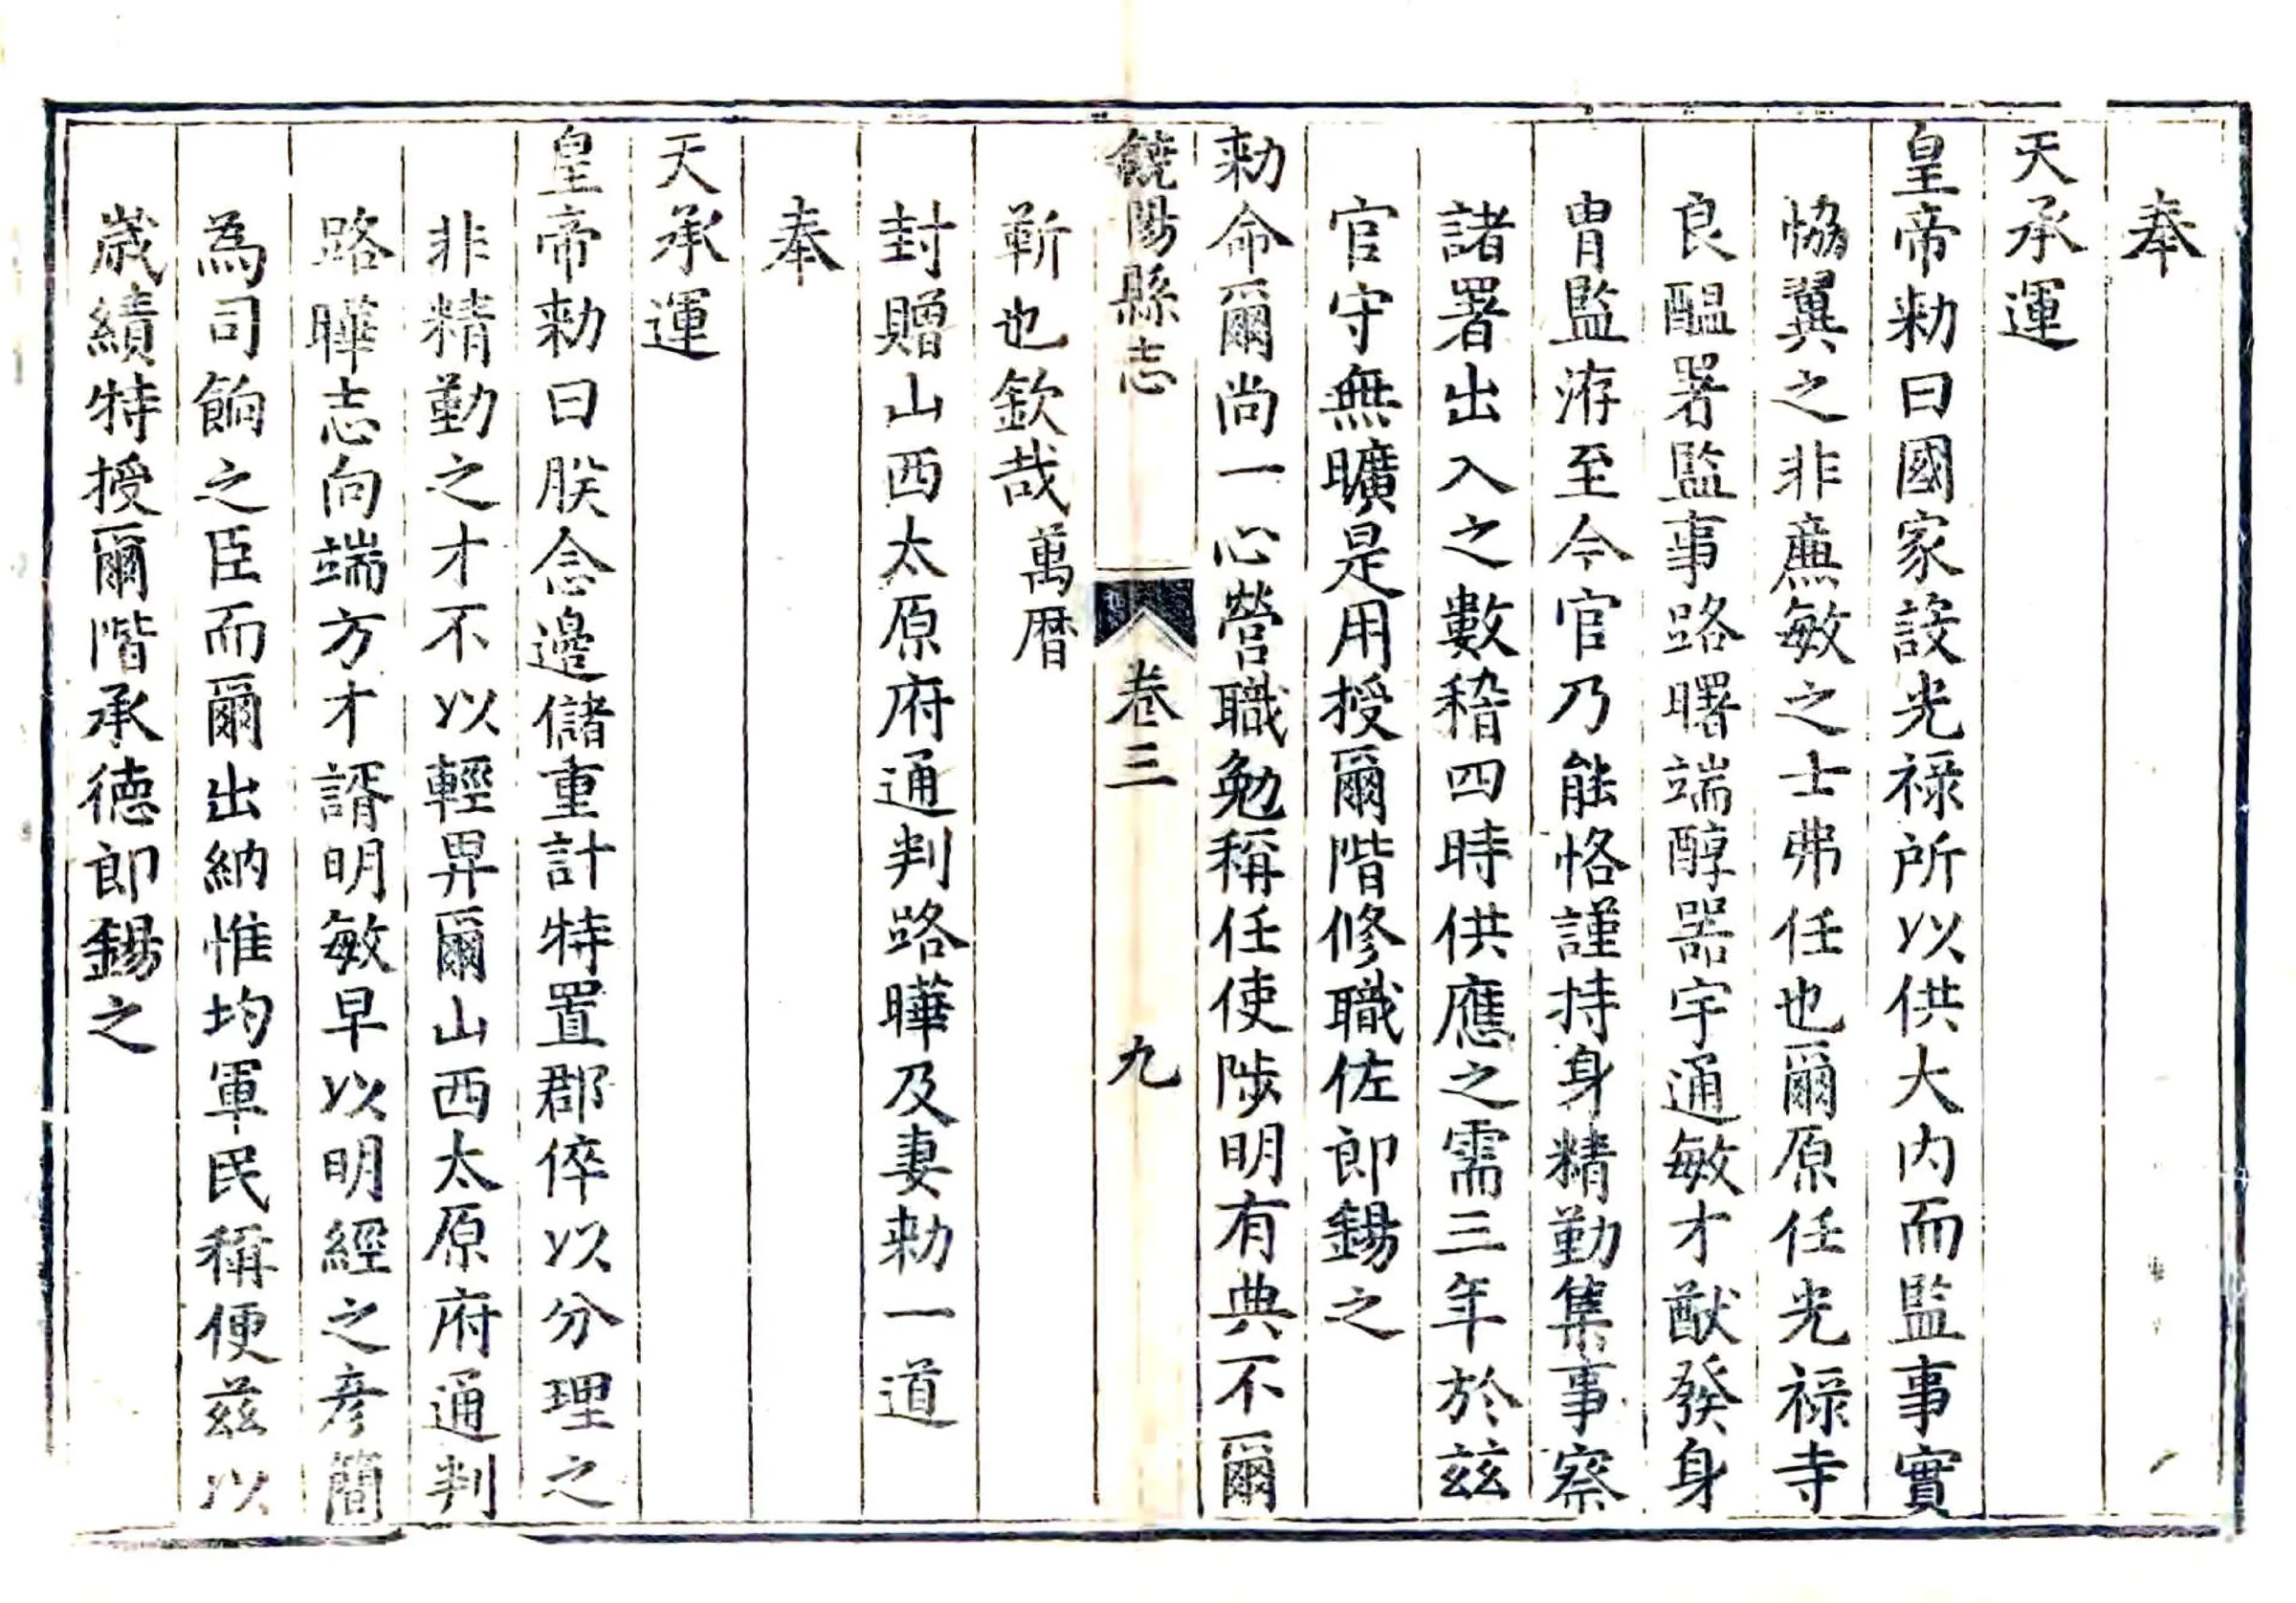 奉
天承運
皇帝勑曰國家設光禄所以供大内而監事實
恊翼之非亷敏之士弗任也爾原任光禄寺
良醖署監事路曙端醇器宇通敏才猷發身
胄監洊至今官乃能恪謹持身精勤集事察
諸署出入之數稽四時供應之需三年於兹
官守無曠是用授爾階修職佐郎錫之
勑命爾尚一心營職勉稱任使陟明有典不爾
饒陽縣志 卷三 九
靳也欽哉萬曆
封贈山西太原府通判路曄及妻勑一道
奉
天承運
皇帝勑曰朕念邊儲重計特置郡倅以分理之
非精勤之才不以輕畀爾山西太原府通判
路曄志向端方才諝明敏早以明經之彦簡
為司餉之臣而爾出納惟均軍民稱便兹以
歲績特授爾階承德郎錫之